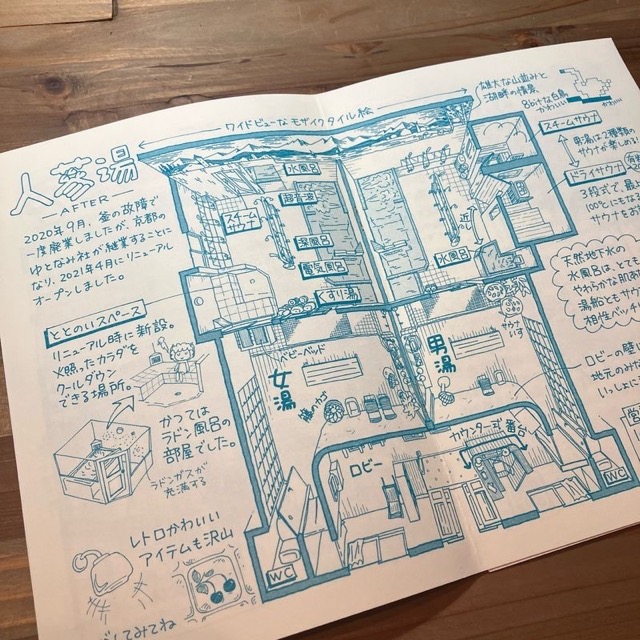 人蔘湯
AFTER
2020年9月、釜の故障で
一度廃業しましたが、京都の
ゆとなみ社が継業することに
なり、2021年4月にリニューアル
オープンしました。
ワイドビューなモザイクタイル絵
雄大な山並みと
湖畔の情景
8bitな白鳥
かわいい
スチームサウナ
男湯は2種類の
サウナが楽しめる
ドライサウナ
3段式で、最
100℃にもなる
サウナを
天然地下水の
水風呂は、とても
やわらかな肌
湯船ともサ
相性バッチ
ロビーの壁
地元のみな
いっしょに
ととのいスペース
リニューアル時に新設。
火照ったカラダを
クールダウン
できる場所。
かつては
ラドン風呂の
部屋でした。
ラドンガスが
充満する
レトロかわいい
アイテムも沢山
してみてね
水風呂
超音波
スチームサウナ
深風呂
電気風呂
くすり湯
近い
水風呂
ベビーベッド
女湯
脱衣カゴ
男湯
サウナ
いす
ロビー
カウンター式番台
WC
WC